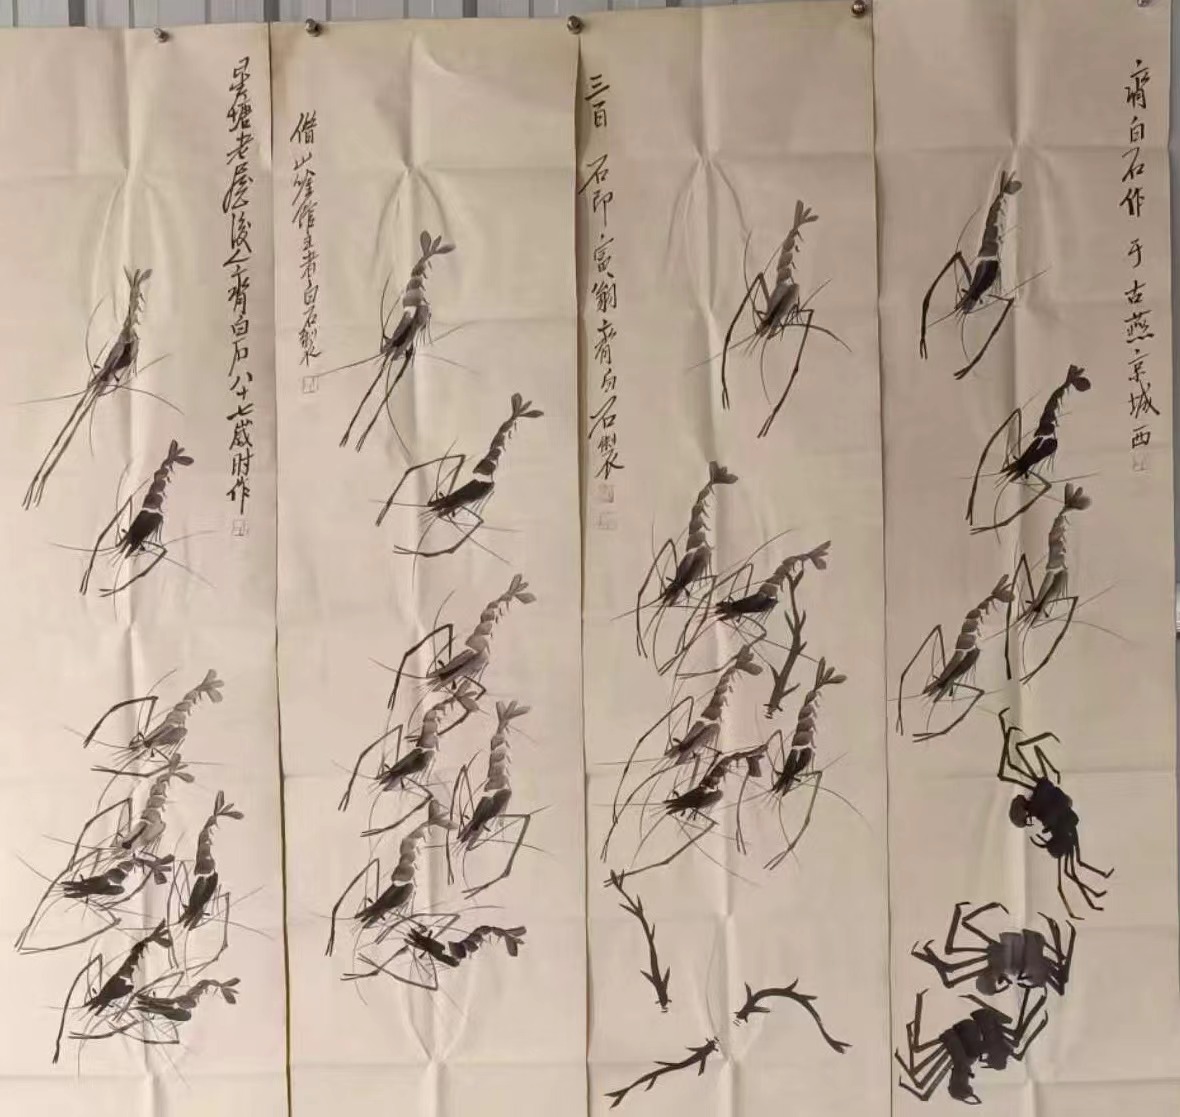 齊白石作于古燕京城西
三百石印富翁齊白石製
借山唫館主者白石製
星塘老屋後人齊白石八十七歲时作